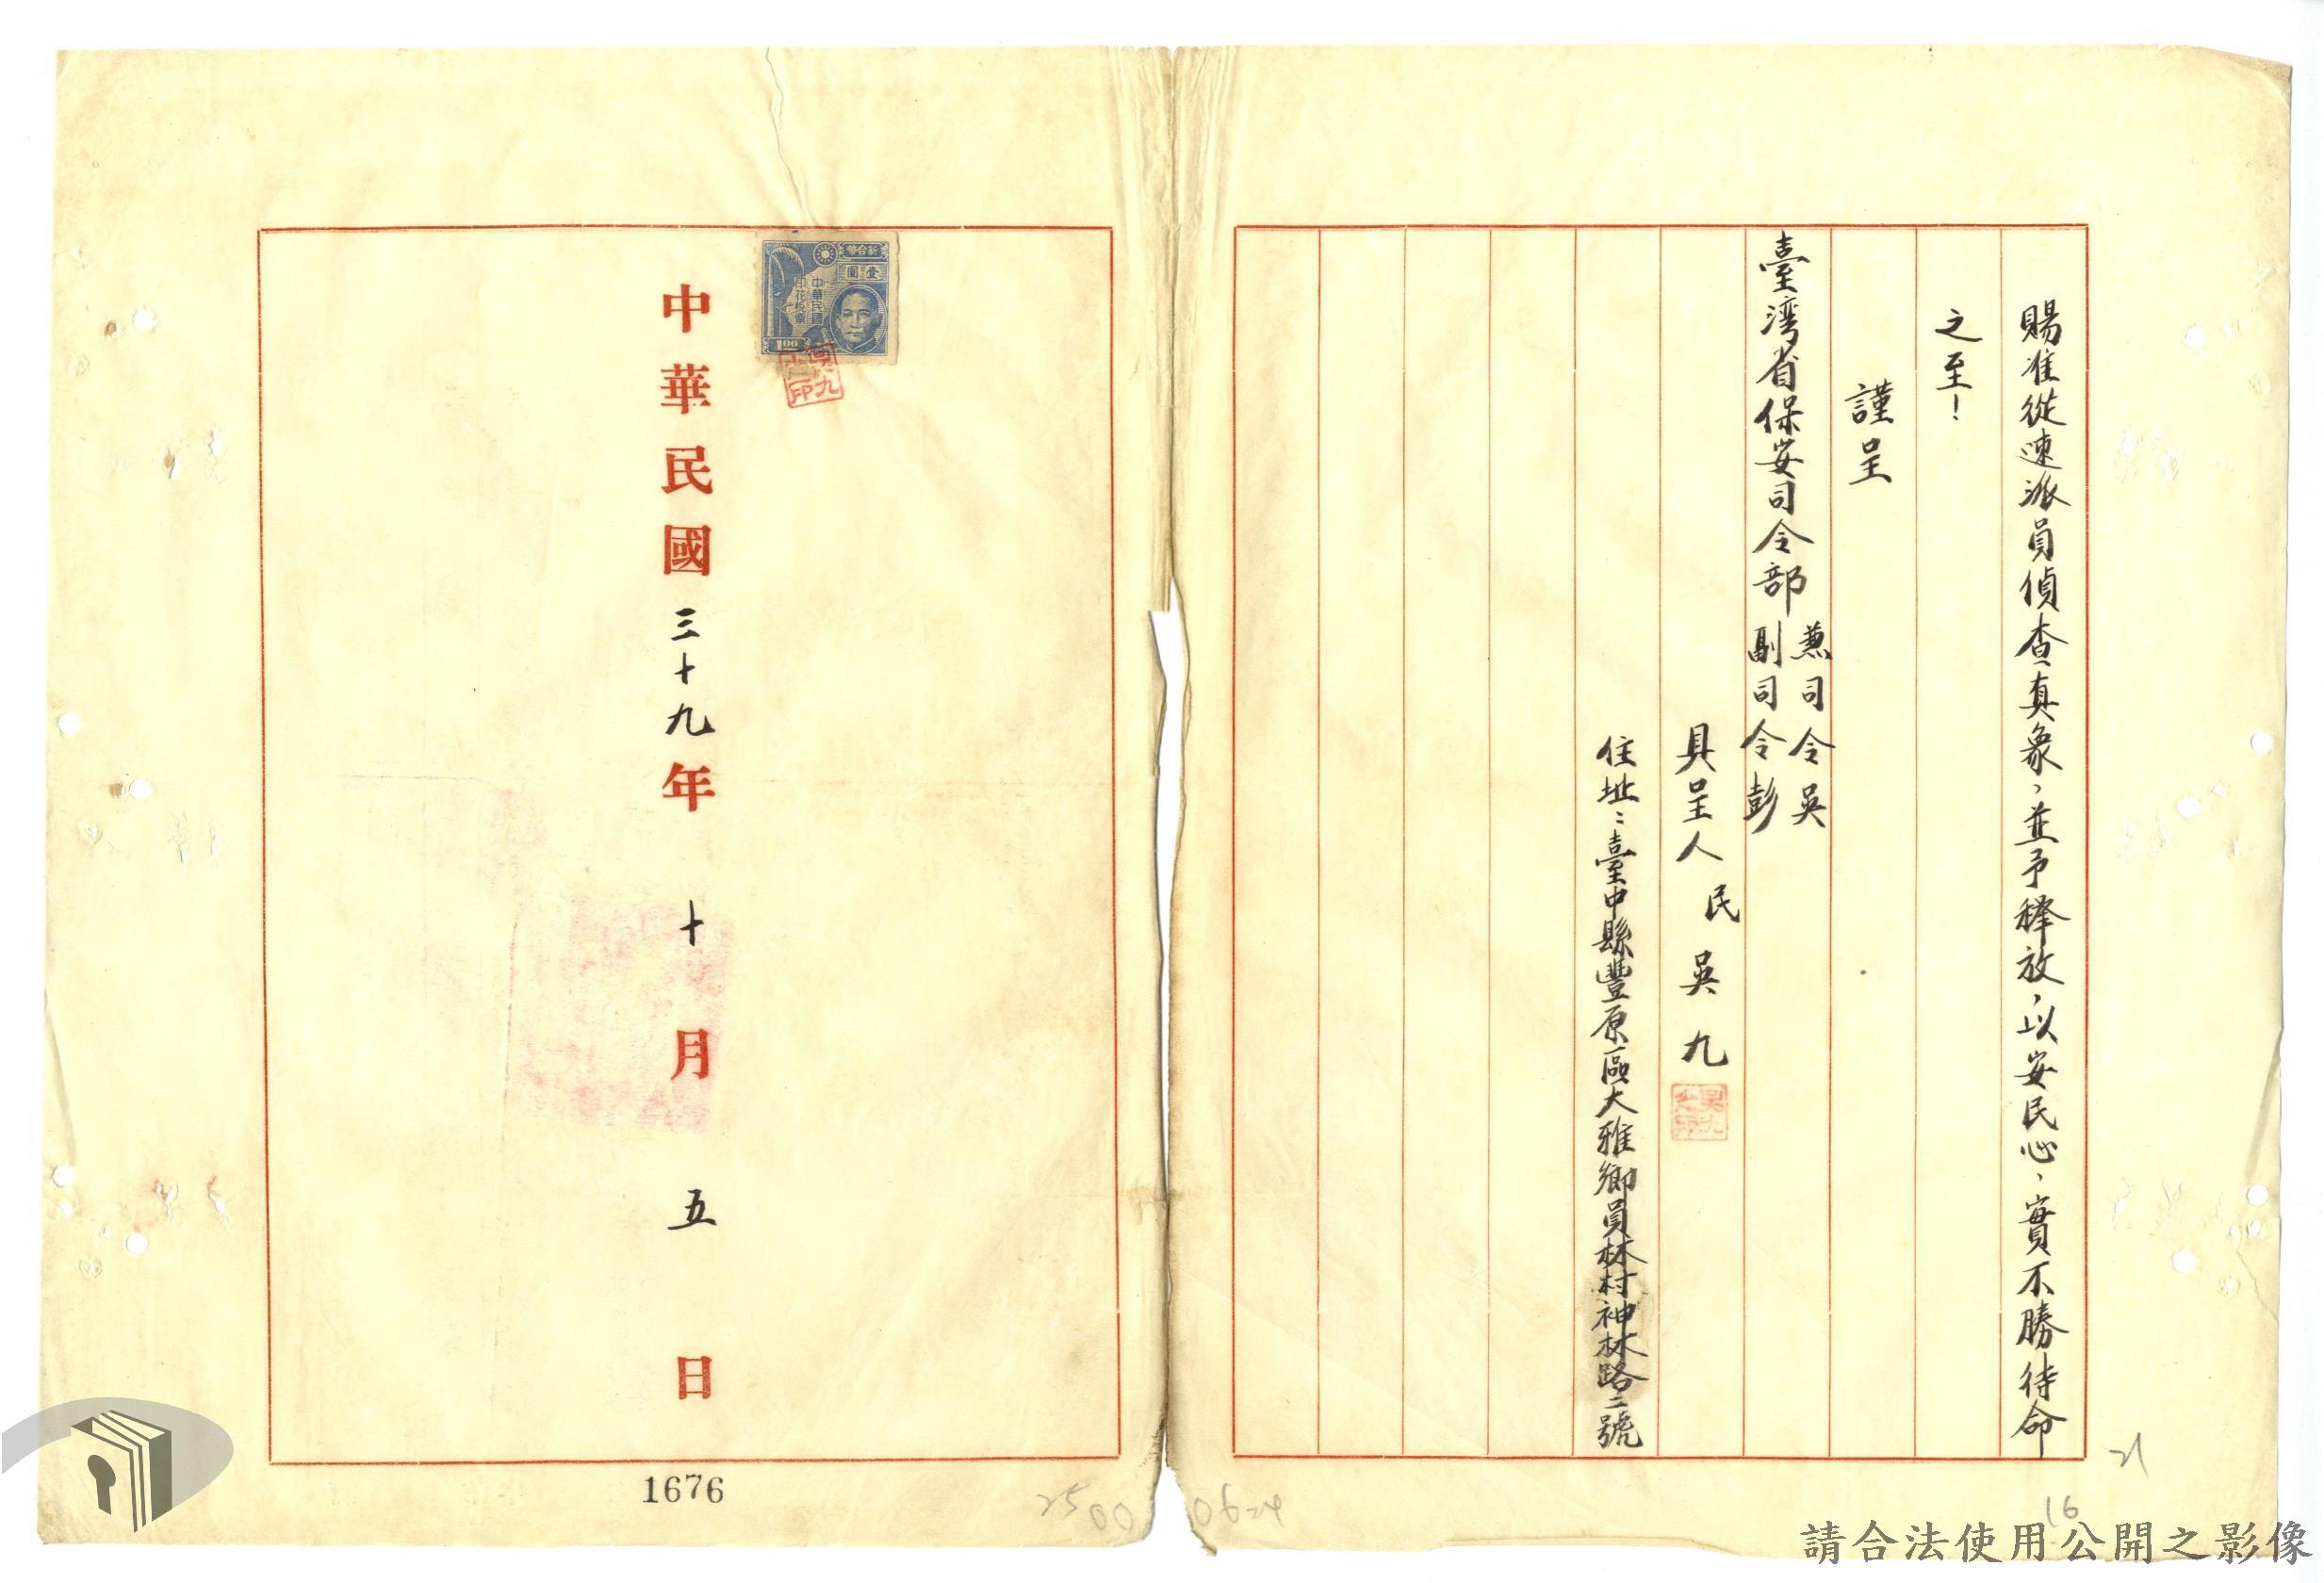 賜准從速派員偵查真象，並予释放，以安民心，實不勝待命
之至！
謹呈
臺湾省保安司令部
兼司令吳
副司令彭
具呈人 民 吳九
吳九之印
住址：臺中縣豐原區大雅鄉員林村神林路二號
新台幣
壹圓
中華民國
印花稅票
1.00
中華民國三十九年十月五日
1676
2500
0624
21
16
請合法使用公開之影像